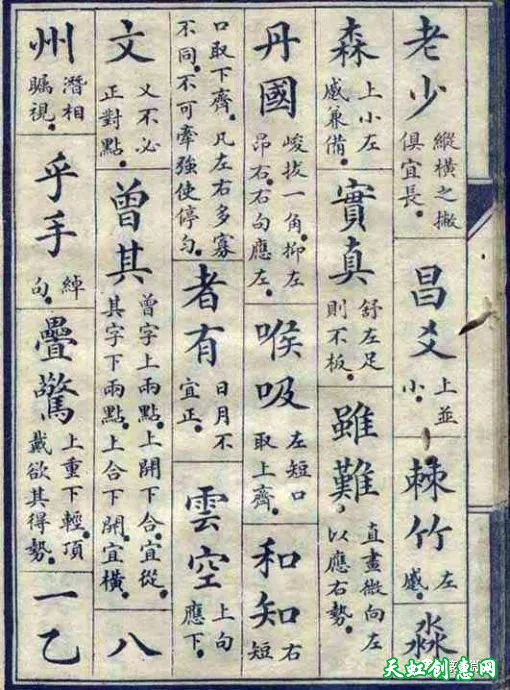 老少 縱橫之撇
俱宜長。
昌爻 上並
小。
棘竹 左
感。
淼
森 上小左
感兼備。
實真 舒左足
則不板。
雖難 直畫微向左
以應右勢。
丹國 峻拔一角。抑左
昂右。右向應左。
喉吸 左短口
取上齊。
和知 右
短
口取下齊。凡左右多寡
不同。不可牽強使停勻。
者有 日月不
宜正。
雲空 上句
應下。
文 乂不必
正對點。
曾其 曾字上兩點。上開下合。宜從。
其字下兩點。上合下開。宜橫。
八
州 潛相
矚視。
乎手 綽
勾。
疊驚 上重下輕。頂
戴欲其得勢。
一乙
天虹创意网